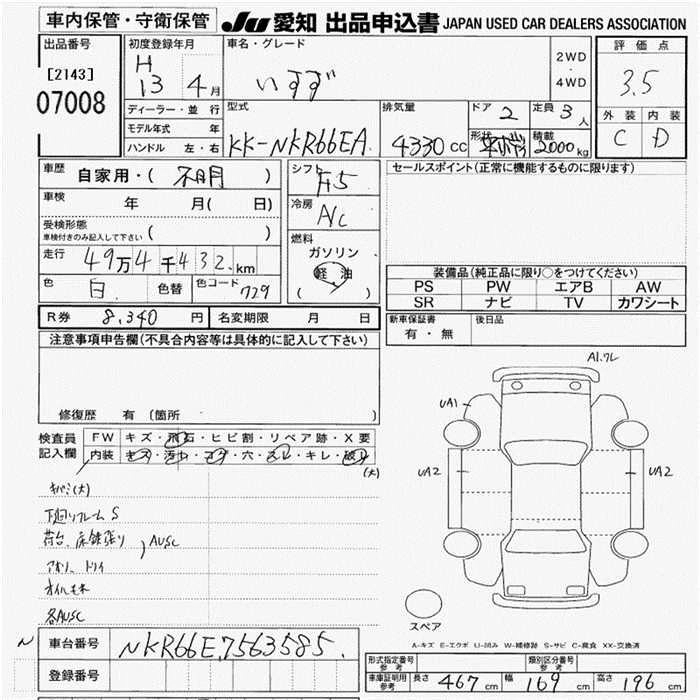 車内保管・守衛保管 JU 愛知 出品申込書 JAPAN USED CAR DEALERS ASSOCIATION
出品番号
[2143]
07008
初度登録年月
H
13 4月
ディーラー・並行
モデル年式 年
ハンドル 左・右
車名・グレード
いすず
2WD
・
4WD
型式
KK-NKR66EA
排気量
4330cc
ドア 2
定員 3人
形状
積載
2000kg
評価点
3.5
外装 内装
C D
車歴 自家用・(不明)
車検 年 月( 日)
受検形態
車検付きのみ記入して下さい ( )
走行 49万4千432km
色 白 色替 色コード 729
シフト
F5
冷房
A/C
燃料
ガソリン
軽油
( )
セールスポイント(正常に機能するものに限ります)
装備品(純正品に限り○をつけてください)
PS PW エアB AW
SR ナビ TV カワシート
R券 8,340円 名変期限 月 日
新車保証書
有・無
後日品
注意事項申告欄(不具合内容等は具体的に記入して下さい)
修復歴 有 (箇所 )
検査員
記入欄
FW キズ・飛石・ヒビ割・リペア跡・X要
内装 キズ・汚れ・コゲ・穴・スレ・キレ・破れ
(大)
キバミ(大)
下廻りフレームS
荷台、床鉄張り
AUSC
アオリ
オイルモレ
各AUSC
A1.ワレ
UA1
UA2
UA2
スペア
A-キズ E-エクボ U-凹み W-補修跡 S-サビ C-腐食 XX-交換済
N
車台番号 NKR66E.7563585.
登録番号
形式指定番号
参考
類別区分番号
参考
車庫証明用
参考
長さ 467cm 幅 169cm 高さ 196cm